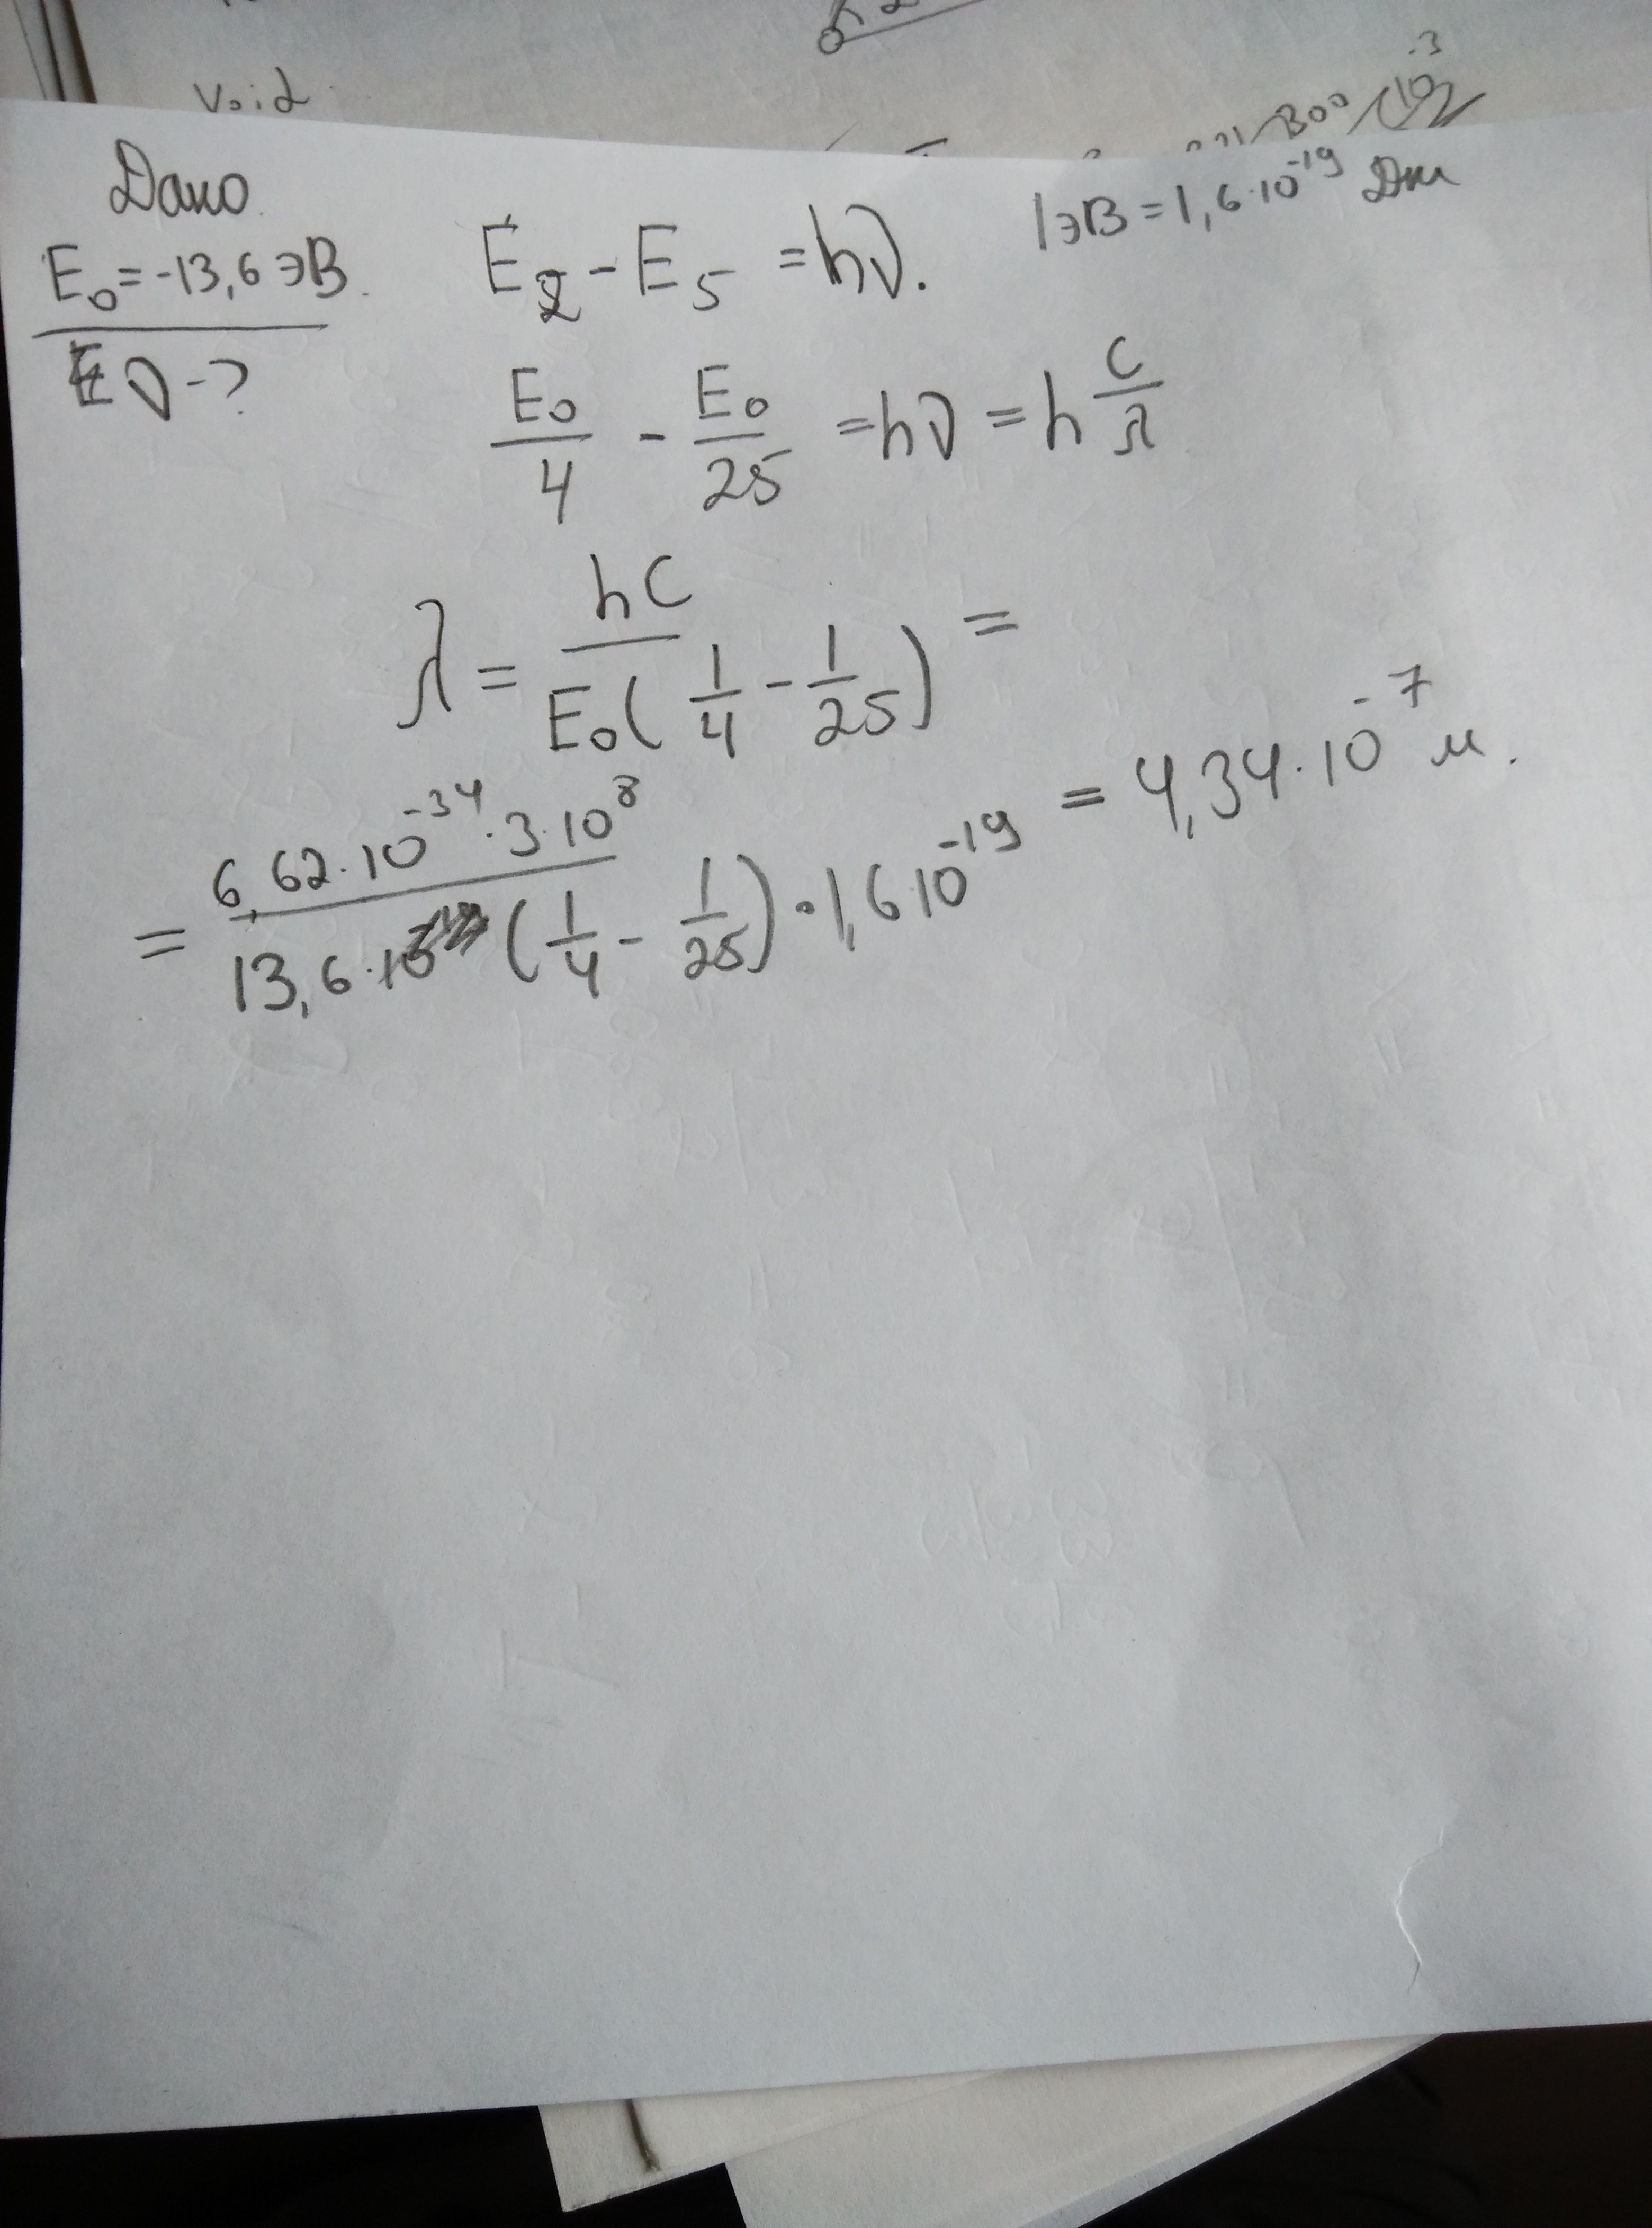 Void
Дано
E₀ = -13,6 эВ.
ν - ?
E₂ - E₅ = hν.
1эВ = 1,6·10⁻¹⁹ Дж
E₀/4 - E₀/25 = hν = h c/λ
λ = hc/(E₀(1/4 - 1/25)) =
= (6,62·10⁻³⁴·3·10⁸)/(13,6 (1/4 - 1/25)·1,6 10⁻¹⁹) = 4,34·10⁻⁷ м.